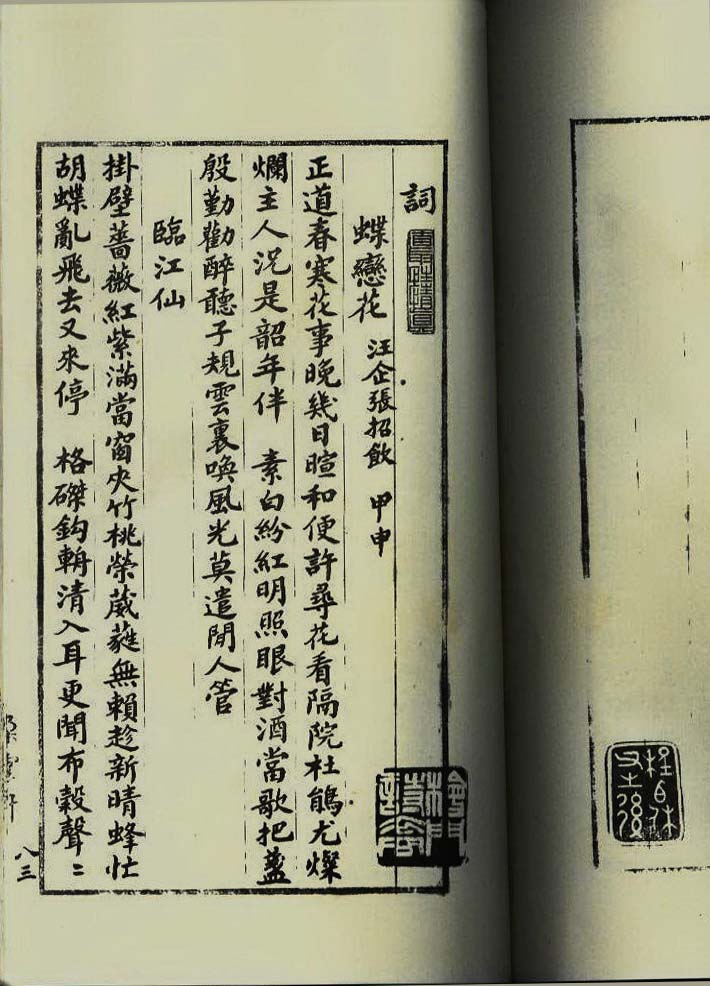 詞
蝶戀花 汪企張招飲 甲申
正道春寒花事晚幾日暄和便許尋花看隔院杜鵑尤燦
爛主人況是韶年伴 素白紛紅明照眼對酒當歌把盞
殷勤勸醉聽子規雲裏喚風光莫遣閒人管
臨江仙
掛壁薔薇紅紫滿當窗夾竹桃榮葳蕤無賴趁新晴蜂忙
胡蝶亂飛去又來停 格磔鈎輈清入耳更聞布穀聲〻
八三